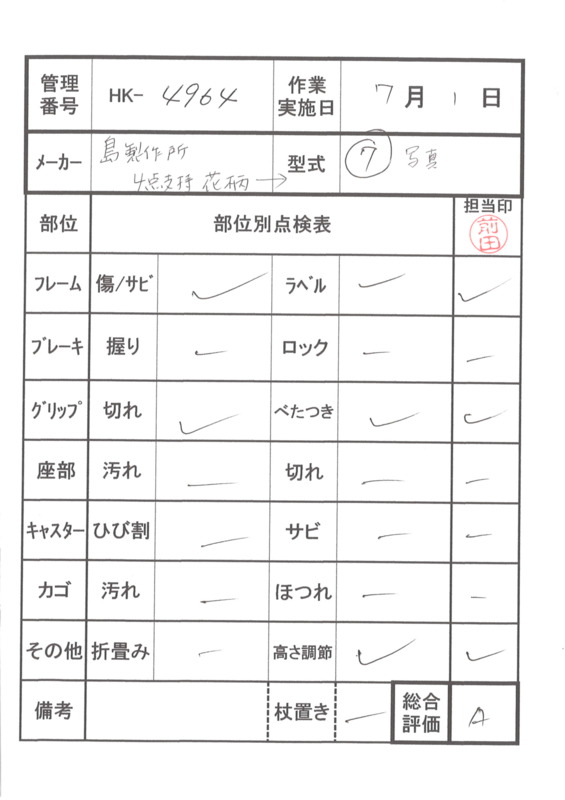 管理番号 HK- 4964 作業実施日 7月1日
メーカー 島製作所 4点支持 花柄→ 型式 ⑦ 写真
部位 部位別点検表 担当印 前田
フレーム 傷/サビ ✓ ラベル ✓ ✓
ブレーキ 握り — ロック — —
グリップ 切れ ✓ べたつき ✓ ✓
座部 汚れ — 切れ — —
キャスター ひび割 — サビ — —
カゴ 汚れ — ほつれ — —
その他 折畳み — 高さ調節 ✓ ✓
備考 杖置き — 総合評価 A